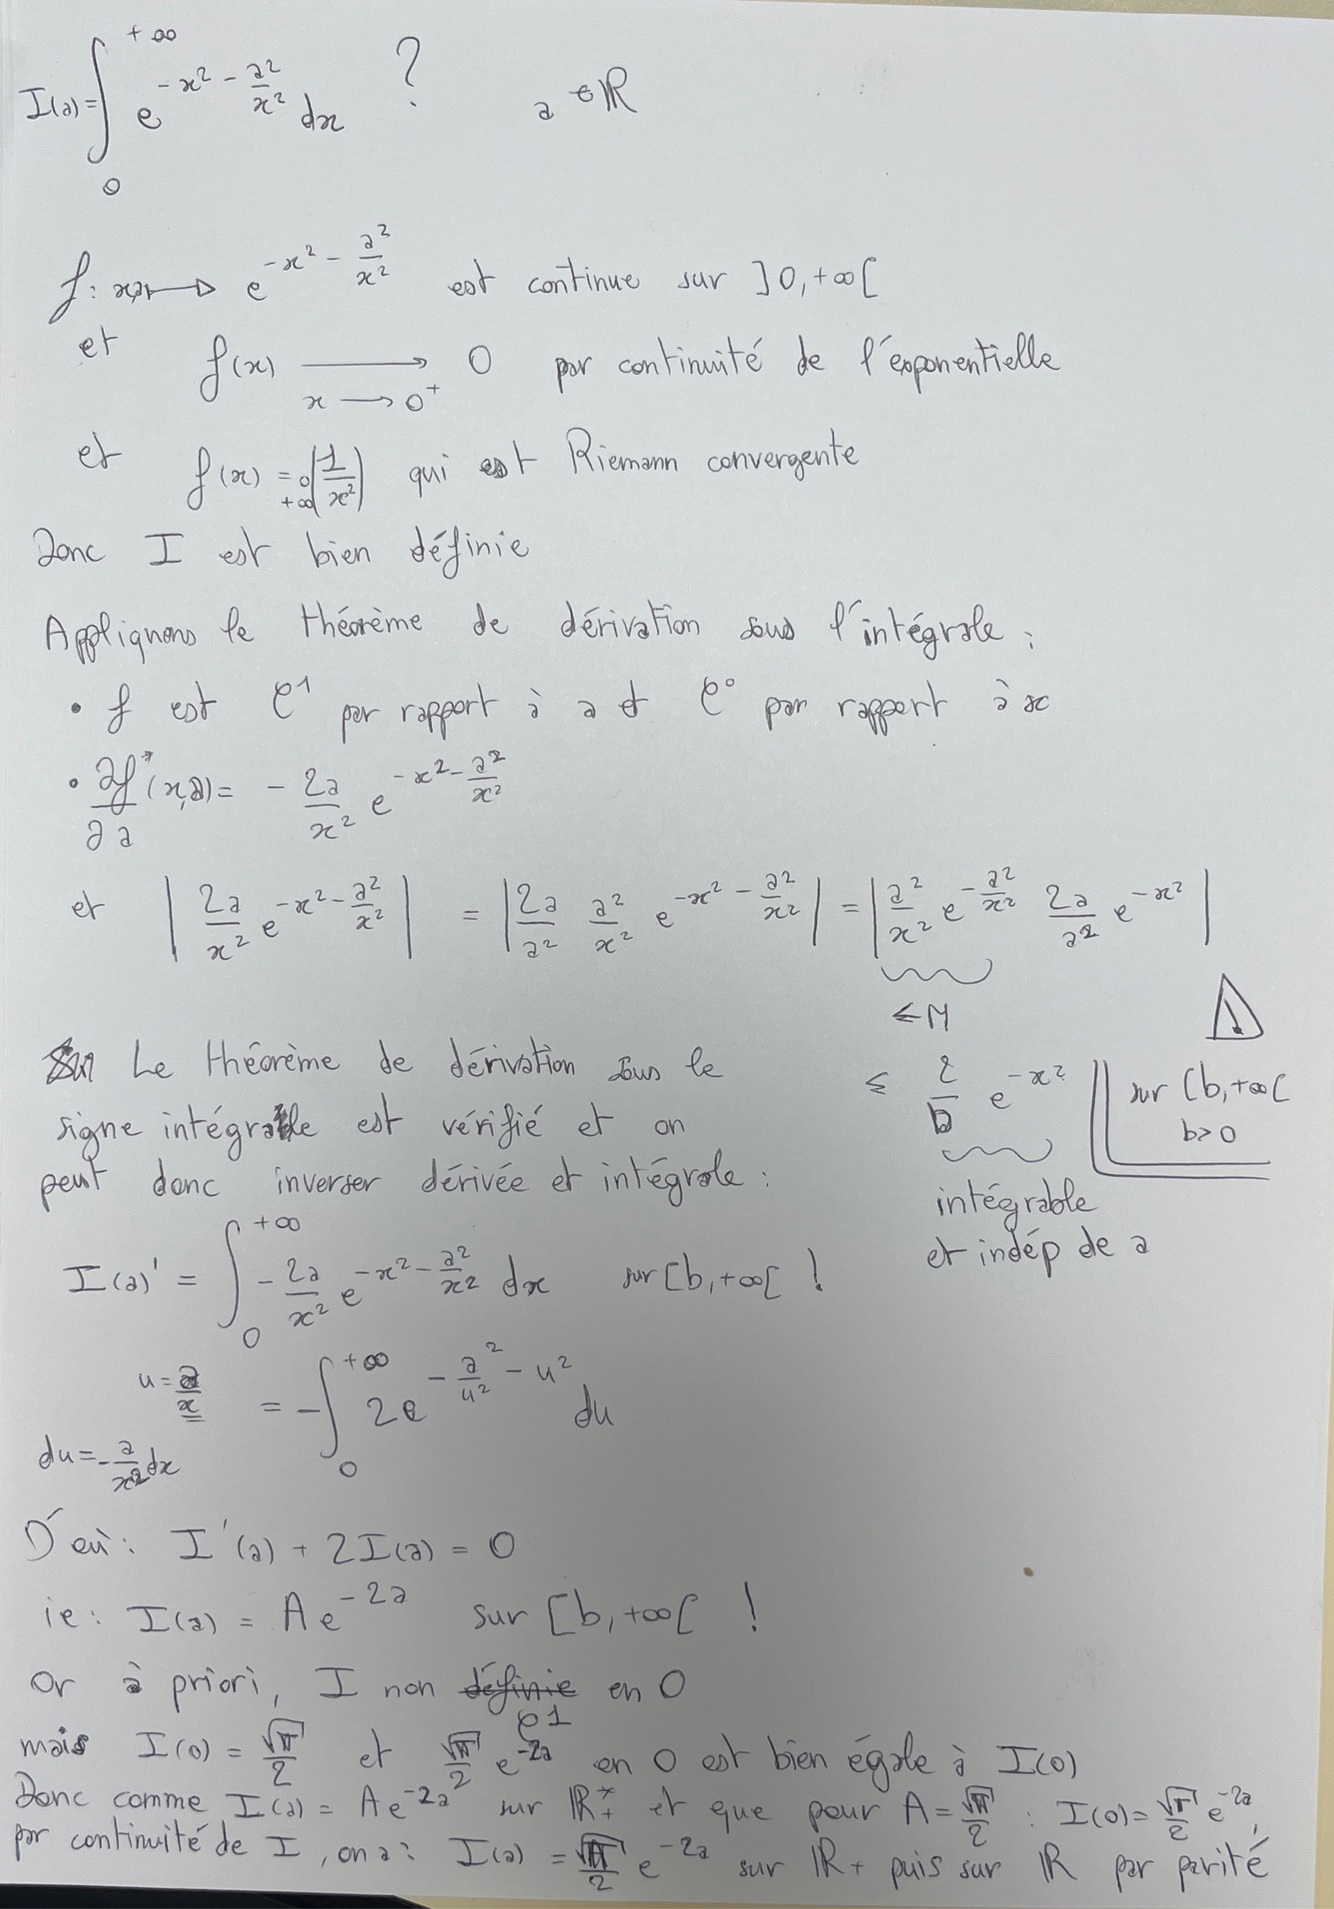 I(a) = ∫₀^{+∞} e^{-x² - a²/x²} dx ? a ∈ ℝ
f : x,a ↦ e^{-x² - a²/x²} est continue sur ]0,+∞[
et f(x) ⟶ 0 par continuité de l'exponentielle
x ⟶ 0⁺
et f(x) = o(1/x²) qui est Riemann convergente
+∞
Donc I est bien définie
Appliquons le théorème de dérivation sous l'intégrale :
• f est C¹ par rapport à a et C⁰ par rapport à x
• ∂f/∂a (x,a) = - 2a/x² e^{-x² - a²/x²}
et | 2a/x² e^{-x² - a²/x²} | = | 2a/a² a²/x² e^{-x² - a²/x²} | = | a²/x² e^{-a²/x²} 2a/a² e^{-x²} |
≤ M
Le théorème de dérivation sous le
signe intégrale est vérifié et on
peut donc inverser dérivée et intégrale :
≤ 2/b e^{-x²}
sur [b,+∞[
b>0
intégrable
et indép de a
I(a)' = ∫₀^{+∞} - 2a/x² e^{-x² - a²/x²} dx sur [b,+∞[ !
u = a/x = - ∫₀^{+∞} 2e^{-a²/u² - u²} du
du = - a/x² dx
D'où : I'(a) + 2I(a) = 0
ie : I(a) = A e^{-2a} sur [b,+∞[ !
Or à priori, I non définie en 0
C1
mais I(0) = √π/2 et √π/2 e^{-2a} en 0 est bien égale à I(0)
Donc comme I(a) = A e^{-2a} sur ℝ₊* et que pour A = √π/2 : I(0) = √π/2 e^{-2a},
par continuité de I, on a : I(a) = √π/2 e^{-2a} sur ℝ+ puis sur ℝ par parité